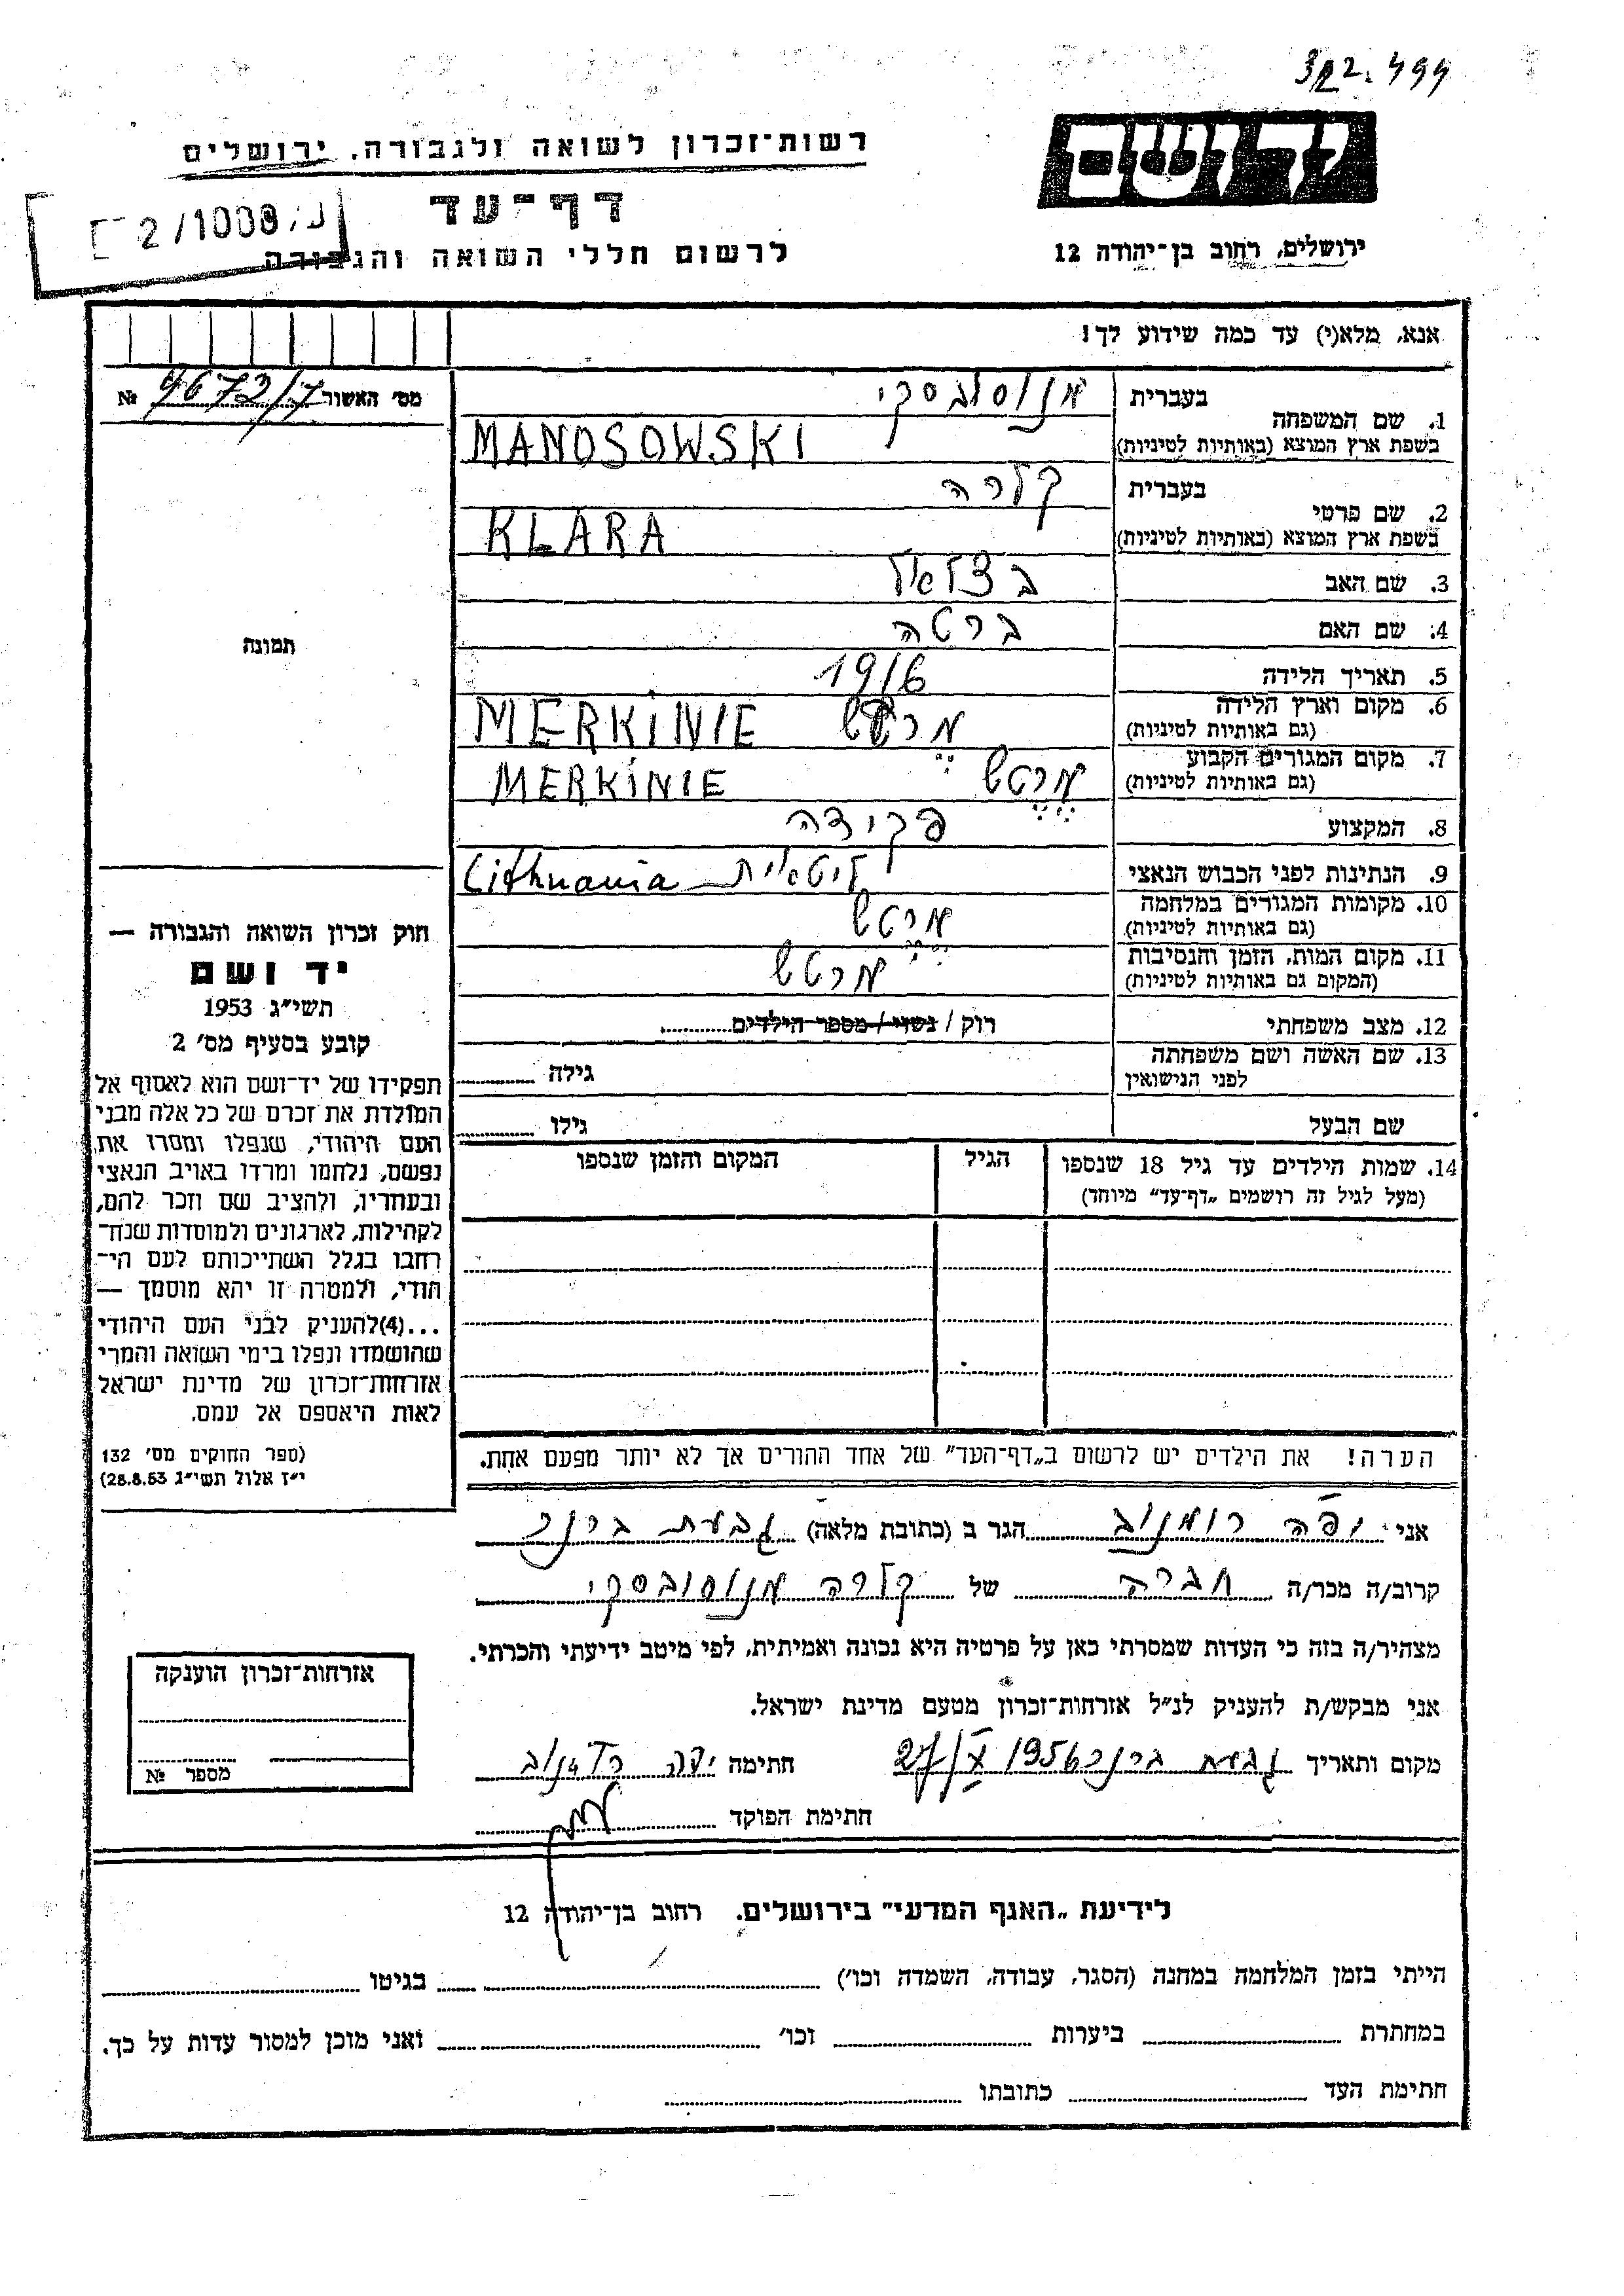 312.499
יד ושם
רשות־זכרון לשואה ולגבורה, ירושלים
דף־עד
2/1008/נ
ירושלים, רחוב בן־יהודה 12
לרשום חללי השואה והגבורה
אנא, מלא(י) עד כמה שידוע לך!
מס׳ האשור № 4672/7
1. שם המשפחה
בעברית מנוסובסקי
בשפת ארץ המוצא (באותיות לטיניות) MANOSOWSKI
2. שם פרטי
בעברית קלרה
בשפת ארץ המוצא (באותיות לטיניות) KLARA
3. שם האב בצלאל
4. שם האם ברטה
5. תאריך הלידה 1916
6. מקום וארץ הלידה
(גם באותיות לטיניות) מרטש MERKINIE
7. מקום המגורים הקבוע
(גם באותיות לטיניות) מרטש MERKINIE
8. המקצוע פקידה
9. הנתינות לפני הכבוש הנאצי ליטאית Lithuania
10. מקומות המגורים במלחמה
(גם באותיות לטיניות) מרטש
11. מקום המות, הזמן והנסיבות
(המקום גם באותיות לטיניות) מרטש
12. מצב משפחתי רוק / נשוי / מספר הילדים
13. שם האשה ושם משפחתה
לפני הנישואין גילה
שם הבעל גילו
14. שמות הילדים עד גיל 18 שנספו
(מעל לגיל זה רושמים „דף־עד״ מיוחד)
הגיל
המקום והזמן שנספו
תמונה
חוק זכרון השואה והגבורה —
יד ושם
תשי״ג 1953
קובע בסעיף מס׳ 2
תפקידו של יד־ושם הוא לאסוף אל
המולדת את זכרם של כל אלה מבני
העם היהודי, שנפלו ומסרו את
נפשם, נלחמו ומרדו באויב הנאצי
ובעוזריו, ולהציב שם וזכר להם,
לקהילות, לארגונים ולמוסדות שנח־
רבו בגלל השתייכותם לעם הי־
הודי, ולמטרה זו יהא מוסמך —
...(4)להעניק לבני העם היהודי
שהושמדו ונפלו בימי השואה והמרי
אזרחות־זכרון של מדינת ישראל
לאות היאספם אל עמם.
(ספר החוקים מס׳ 132
י״ז אלול תשי״ג 28.8.53)
הערה! את הילדים יש לרשום ב„דף־העד״ של אחד ההורים אך לא יותר מפעם אחת.
אני יפה רומנוב הגר ב (כתובת מלאה) גבעת ברנר
קרוב/ה מכר/ה חברה של קלרה מנוסובסקי
מצהיר/ה בזה כי העדות שמסרתי כאן על פרטיה היא נכונה ואמיתית, לפי מיטב ידיעתי והכרתי.
אני מבקש/ת להעניק לנ״ל אזרחות־זכרון מטעם מדינת ישראל.
מקום ותאריך גבעת ברנר 1956 חתימה יפה רומנוב
חתימת הפוקד
אזרחות־זכרון הוענקה
מספר №
לידיעת „האגף המדעי״ בירושלים. רחוב בן־יהודה 12
הייתי בזמן המלחמה במחנה (הסגר, עבודה, השמדה וכו׳) בגיטו
במחתרת ביערות וכו׳ ואני מוכן למסור עדות על כך.
חתימת העד כתובתו